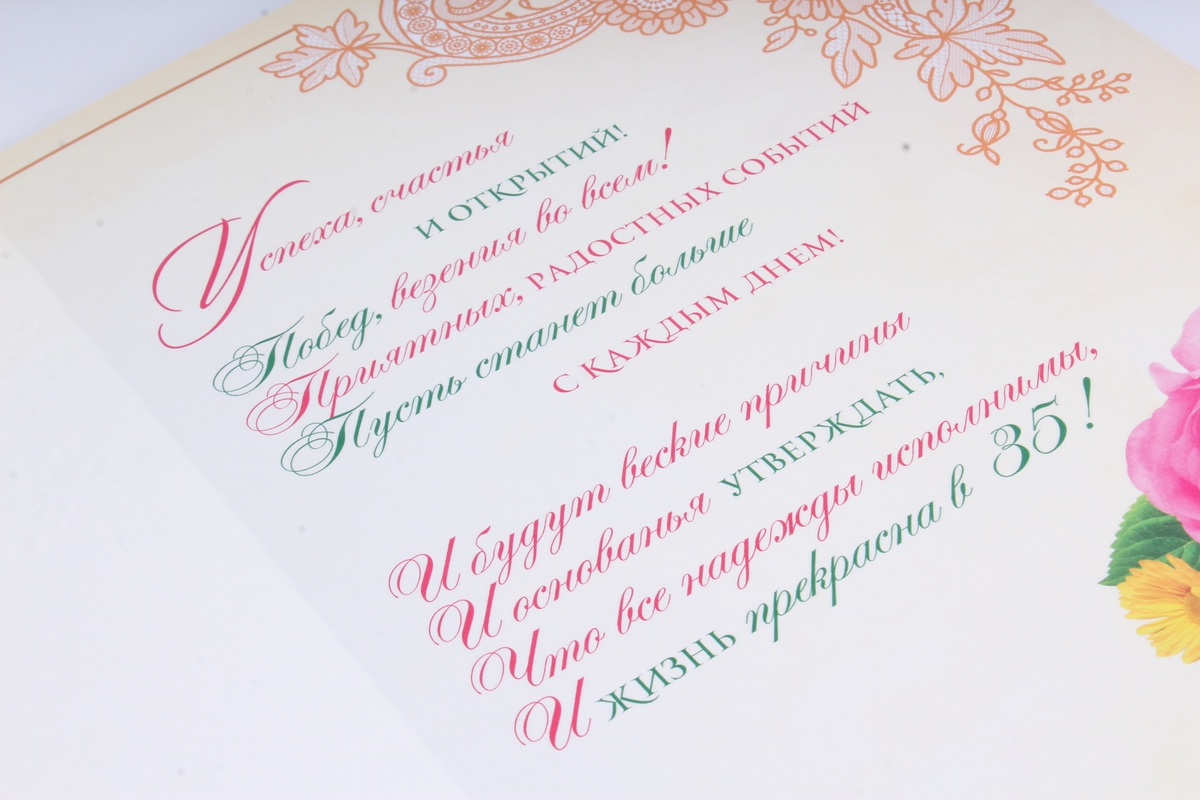 Успеха, счастья
И ОТКРЫТИЙ!
Побед, везения во всем!
Приятных, РАДОСТНЫХ СОБЫТИЙ
Пусть станет больше
С КАЖДЫМ ДНЕМ!
И будут веские причины
И основанья УТВЕРЖДАТЬ,
Что все надежды исполнимы,
И ЖИЗНЬ прекрасна в 35!